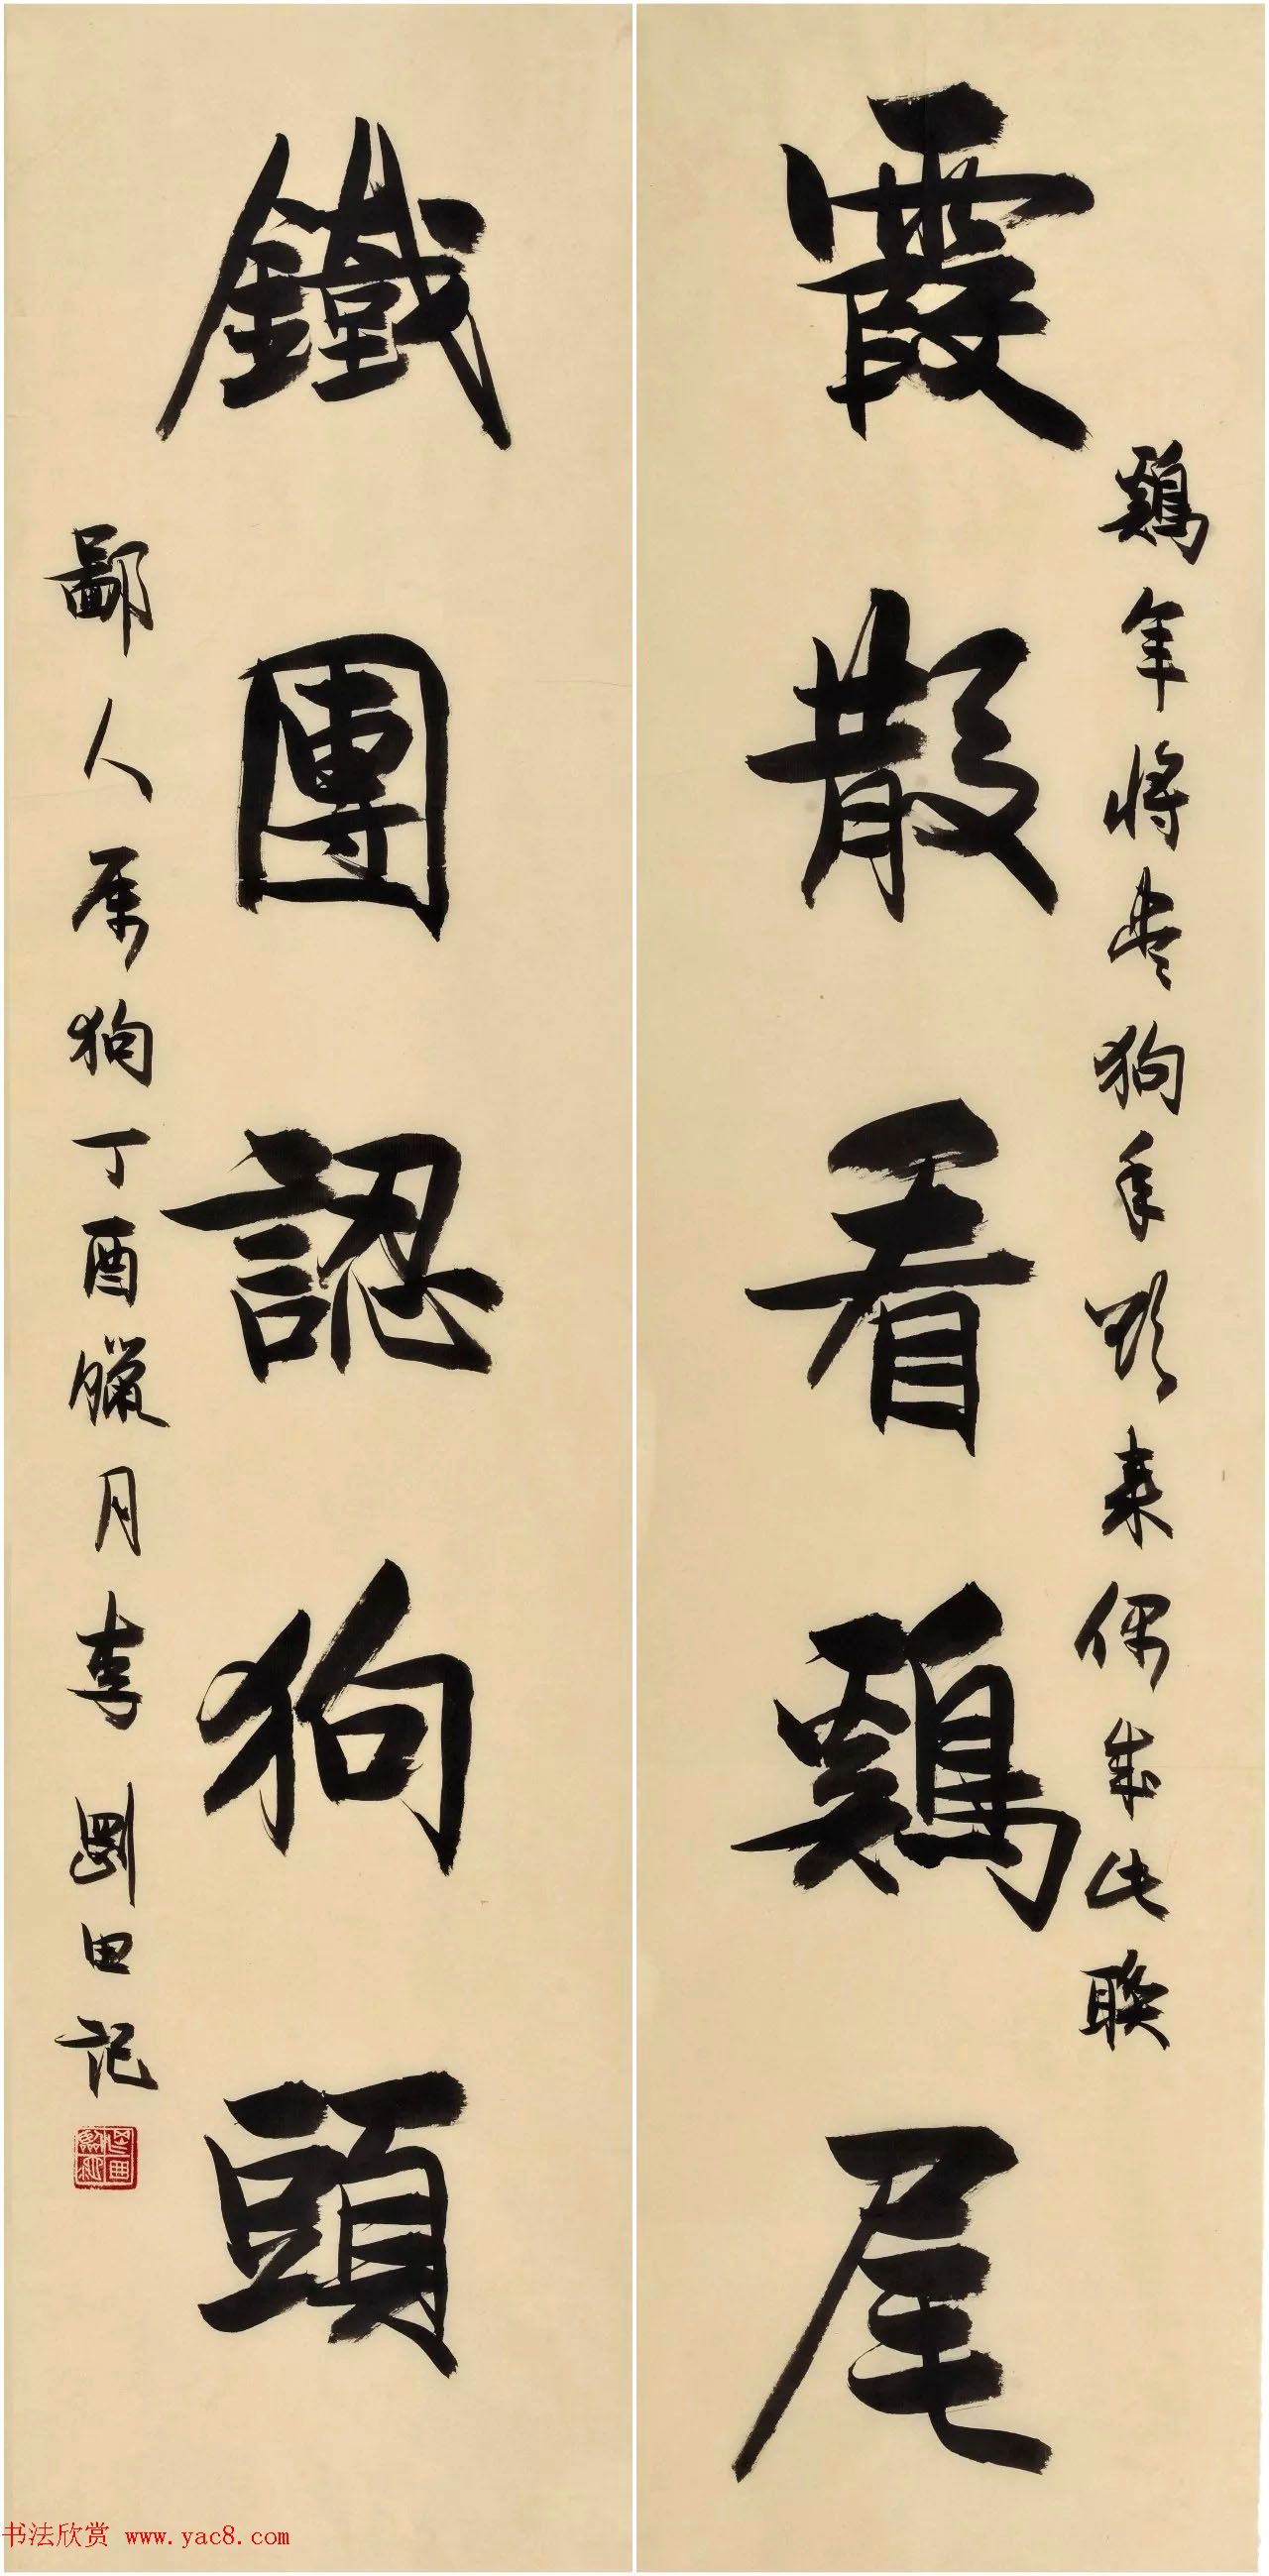 霞散看鷄尾
鷄年將盡狗年欲來偶成此聯
鐵團認狗頭
鄙人属狗丁酉臘月李剛田記
书法欣赏 www.yac8.com